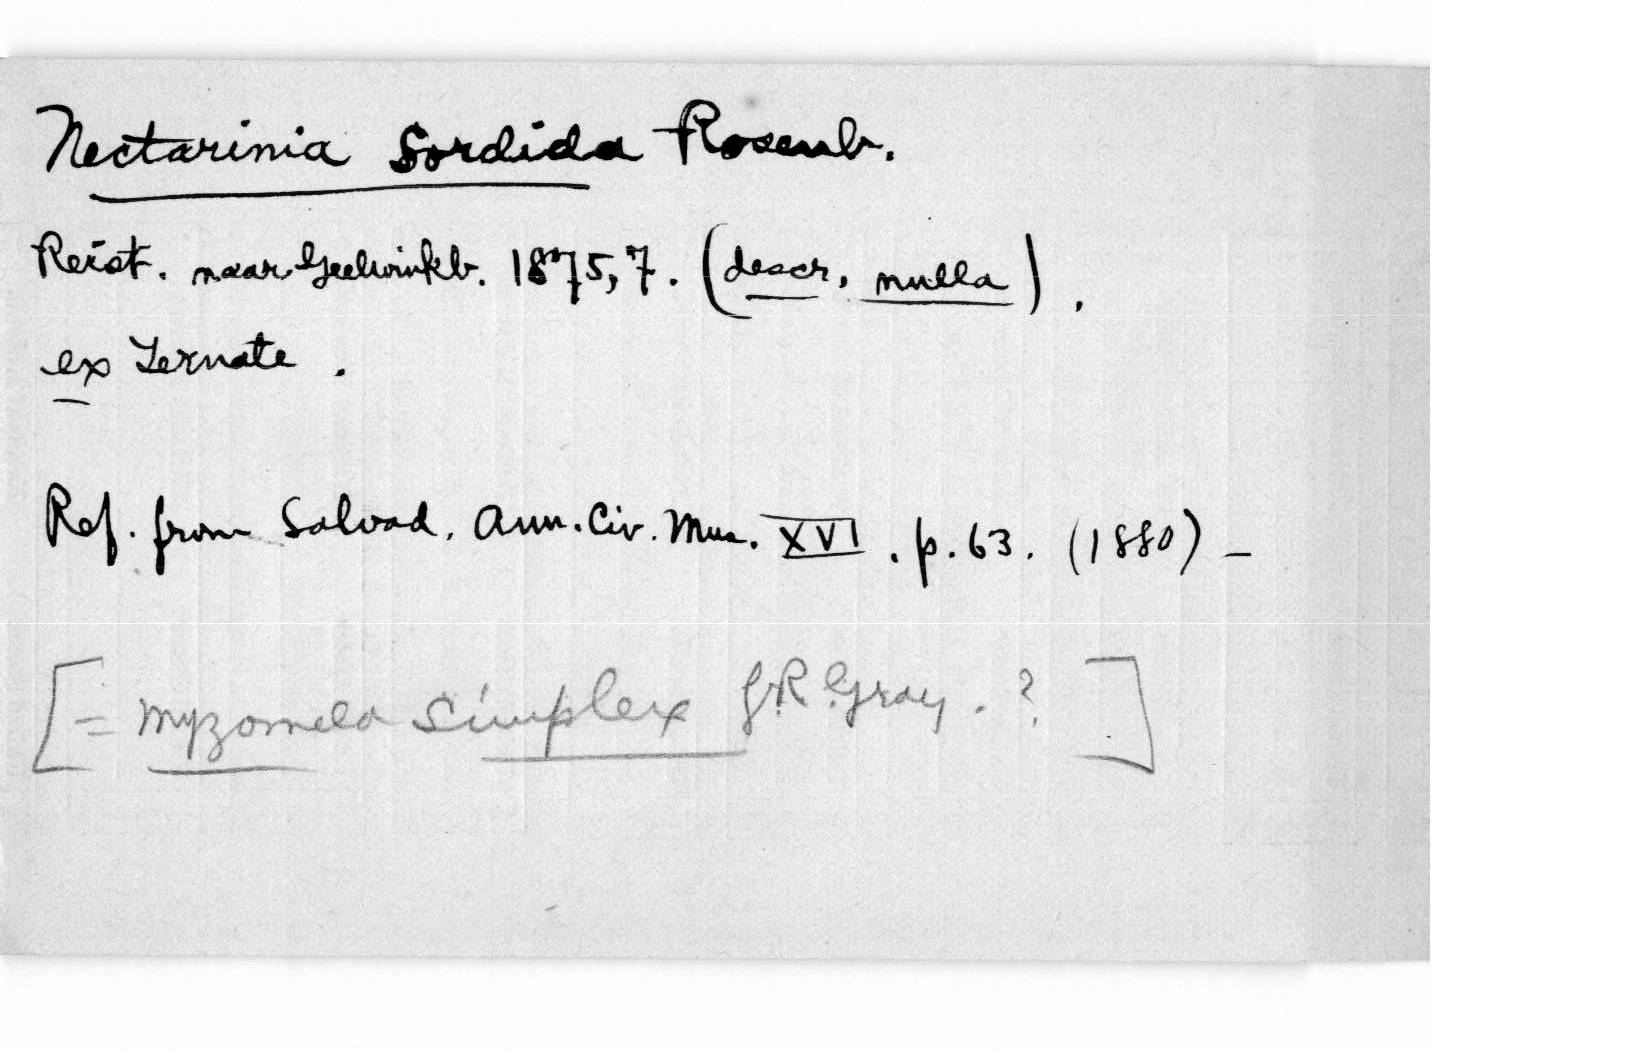 Nectarinia sordida Rosenb.
Reist. naar Geelvinkb. 1875, 7. (descr. nulla).
ex Ternate.
Ref. from Salvad. Ann. Civ. Mus. XVI. p. 63. (1880) –
[= Myzomela simplex G.R. Gray. ?]